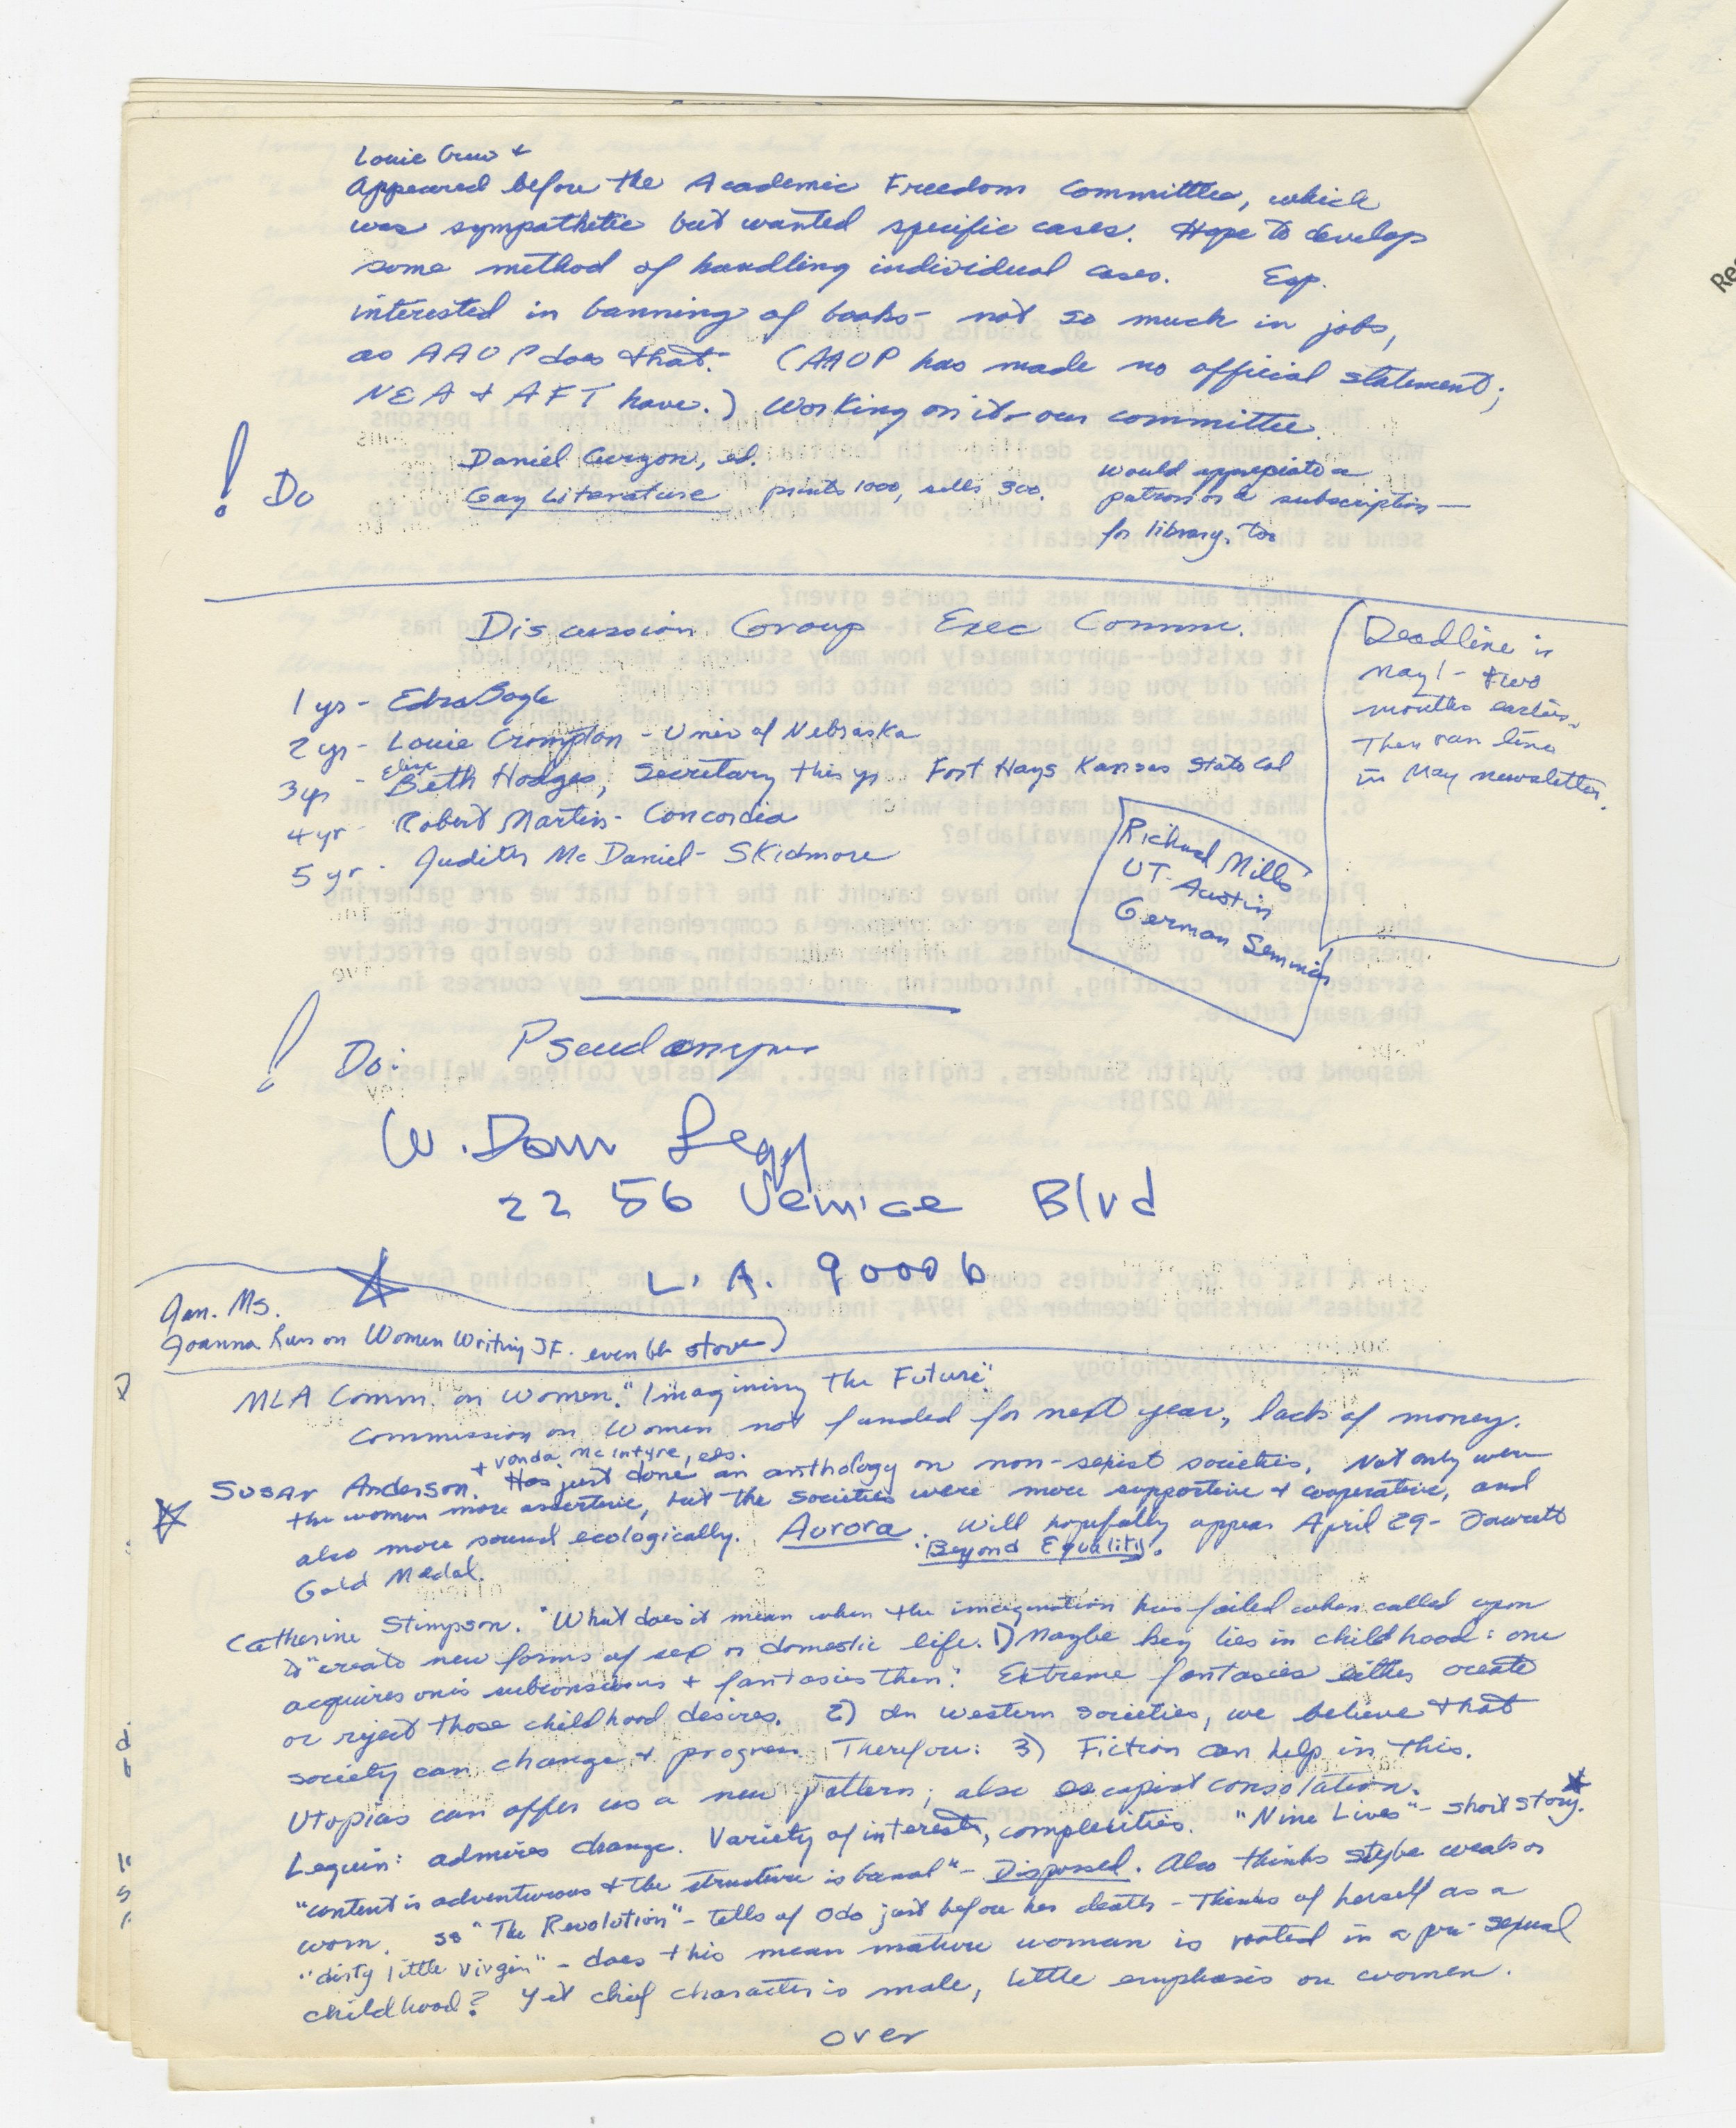 Louie Crew +
Appeared before the Academic Freedom Committtee, which
was sympathetic but wanted specific cases. Hope to develop
some method of handling individual cases. Esp.
interested in banning of books - not so much in jobs,
as AAUP does that. (AAUP has made no official statement;
NEA + AFT have.) Working on it - our committee.
! Do
Daniel Curzon, ed.
Gay Literature prints 1000, sells 300.
would appreciate a
patron or a subscription —
for library, too
Discussion Group Exec Comm.
Deadline is
May 1 - two
months earlier.
Then can line
in May newsletter.
1 yr - Edra Bogle
2 yr - Louie Crompton - Univ of Nebraska
3 yr - Elise Beth Hodges, Secretary this yr Fort Hays Kansas State Col
4 yr - Robert Martin - Concordia
5 yr - Judith McDaniel - Skidmore
Richard Mills
UT-Austin
German Seminar
! Do: Pseudonym
W. Dorr Legg
2256 Venice Blvd
L. A. 90006
Jan. Ms.
Joanna Russ on Women Writing SF. even bk store
MLA Comm. on Women. "Imagining the Future"
Commission on Women not funded for next year, lack of money.
+ Vonda McIntyre, eds.
Susan Anderson. Has just done an anthology on non-sexist societies. Not only were
the women more assertive, but the societies were more supportive + cooperative, and
also more sound ecologically. Aurora. Will hopefully appear April 29 - Fawcett
Beyond Equality.
Gold Medal.
Catherine Stimpson. "What does it mean when the imagination has failed when called upon
to "create new forms of sex or domestic life. 1) Maybe key lies in childhood: one
acquires one's subconscious + fantasies then." Extreme fantasies either create
or reject those childhood desires. 2) In western societies, we believe that
society can change + progress. Therefore: 3) Fiction can help in this.
Utopias can offer us a new pattern; also escapist consolation.
Leguin: admires change. Variety of interests, complexities. "Nine Lives" - short story.
"content is adventurous + the structure is banal" - Disposed. Also thinks style weak or
worn. SS "The Revolution" - tells of Odo just before her death - thinks of herself as a
"dirty little virgin" - does this mean mature woman is rooted in a pre-sexual
childhood? Yet chief character is male, little emphasis on women.
over